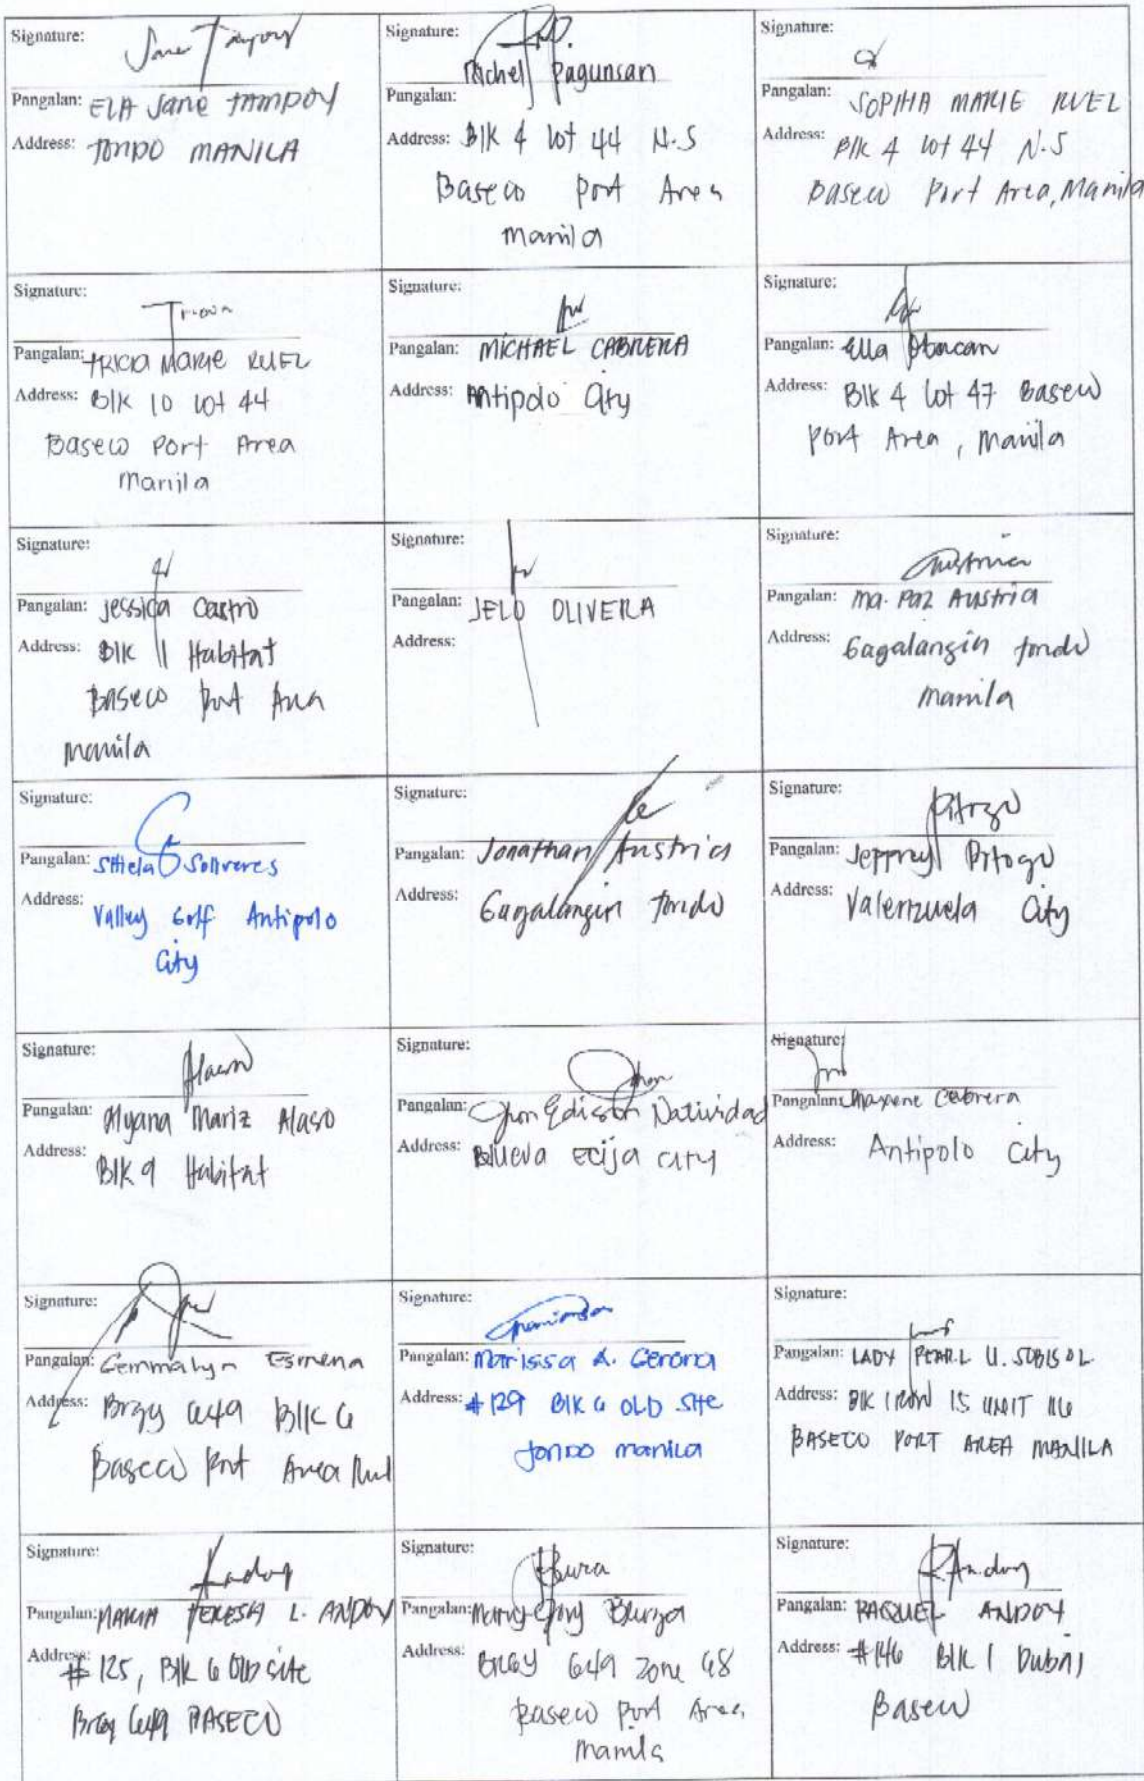 Signature:
Jane Tampoy
Pangalan: ELA Jane TAMPOY
Address: TONDO MANILA
Signature:
Pangalan: Richel Pagunsan
Address: Blk 4 lot 44 N.S
Baseco Port Area
Manila
Signature:
Pangalan: SOPHIA MARIE RUEL
Address: Blk 4 lot 44 N.S
Baseco Port Area, Manila
Signature:
Pangalan: TRICIA Marie RUEL
Address: Blk 10 lot 44
Baseco Port Area
Manila
Signature:
Pangalan: MICHAEL CABRERA
Address: Antipolo City
Signature:
Pangalan: Ella
Address: Blk 4 lot 47 Baseco
Port Area, Manila
Signature:
Pangalan: Jessica Castro
Address: Blk 11 Habitat
Baseco Port Area
Manila
Signature:
Pangalan: JELO OLIVERA
Address:
Signature:
Austria
Pangalan: Ma. Paz Austria
Address: Gagalangin Tondo
Manila
Signature:
Pangalan: Shiela Soliveres
Address:
Valley Golf Antipolo
City
Signature:
Pangalan: Jonathan Austria
Address:
Gagalangin Tondo
Signature:
Pitogo
Pangalan: Jeffrey Pitogo
Address: Valenzuela City
Signature:
Alaso
Pangalan: Alyana Mariz Alaso
Address:
Blk 9 Habitat
Signature:
Jhon
Pangalan: Jhon Edison Natividad
Address: Nueva Ecija City
Signature:
Pangalan: Maxene Cabrera
Address: Antipolo City
Signature:
Pangalan: Gemmalyn Esmena
Address: Brgy 649 Blk 6
Baseco Port Area Mnl
Signature:
Pangalan: Marissa A. Gerona
Address: #129 Blk 6 OLD Site
Tondo Manila
Signature:
Pangalan: LADY PEARL U. SOBISOL
Address: BLK 1 ROW 15 UNIT 116
BASECO PORT AREA MANILA
Signature:
Andoy
Pangalan: MARIA TERESA L. ANDOY
Address: #125, Blk 6 Old site
Brgy 649 BASECO
Signature:
Pangalan: Mary
Address: BRGY 649 Zone 68
Baseco Port Area
Manila
Signature:
R. Andoy
Pangalan: RAQUEL ANDOY
Address: #146 Blk 1 Dubai
Baseco